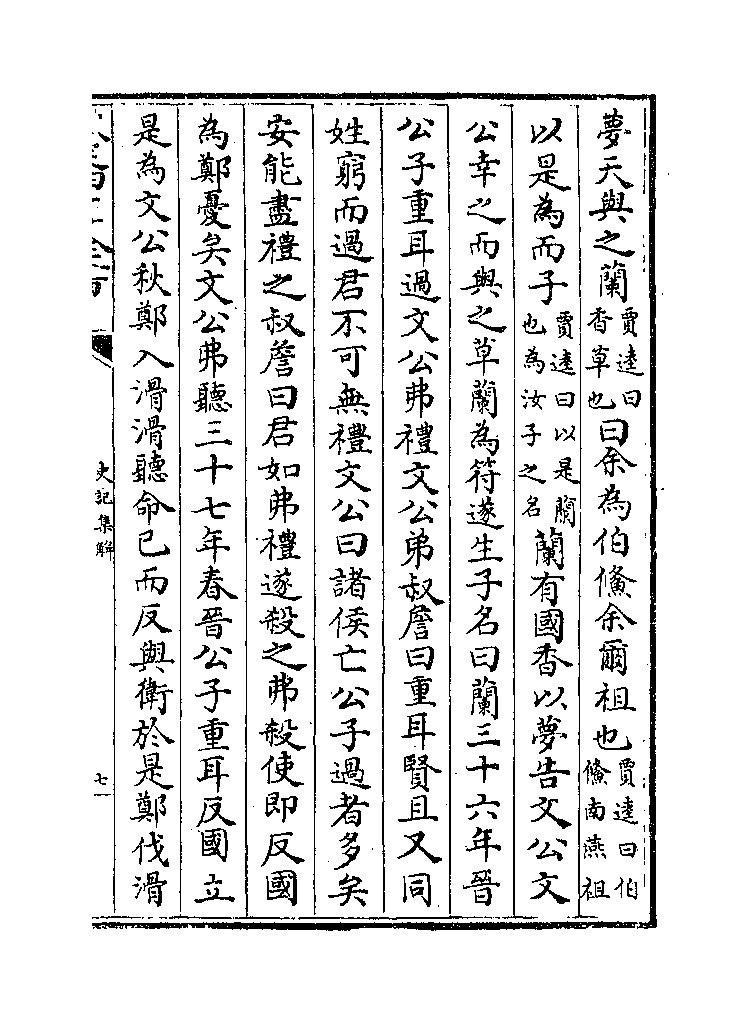 夢天與之蘭賈逵曰香草也曰余為伯鯈余爾祖也賈逵曰伯鯈南燕祖
以是為而子賈逵曰以是蘭也為汝子之名蘭有國香以夢告文公文
公幸之而與之草蘭為符遂生子名曰蘭三十六年晉
公子重耳過文公弗禮文公弟叔詹曰重耳賢且又同
姓窮而過君不可無禮文公曰諸侯亡公子過者多矣
安能盡禮之叔詹曰君如弗禮遂殺之弗殺使即反國
為鄭憂矣文公弗聽三十七年春晉公子重耳反國立
是為文公秋鄭入滑滑聽命已而反與衛於是鄭伐滑
史記集解
七